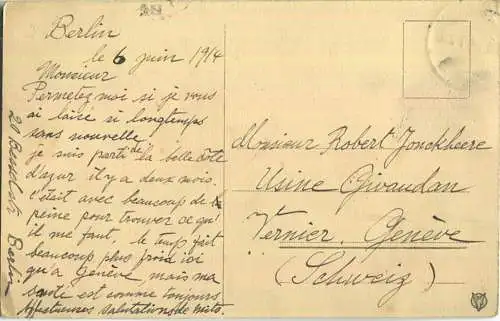 Berlin
le 6 juin 1914
Monsieur
Permetez moi si je vous
ai laisé si longtemps
sans nouvelle.
je suis parti de la belle Côte
d'azur il y a deux mois.
c'était avec beaucoup de
peine pour trouver ce qu'
il me faut. le temp fait
beaucoup plus froid ici
qu'a Genève, mais ma
santé est comme toujours
Affectueuses salutations de
20 Berlin
Monsieur Robert Jonckheere
Usine Givaudan
Vernier. Genève
(Schweiz)